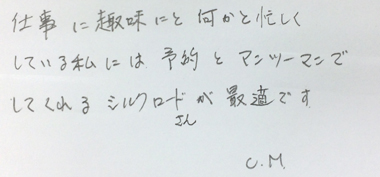 仕事に趣味にと何かと忙しく
している私には予約とマンツーマンで
してくれるシルクロードさんが最適です
C.M.